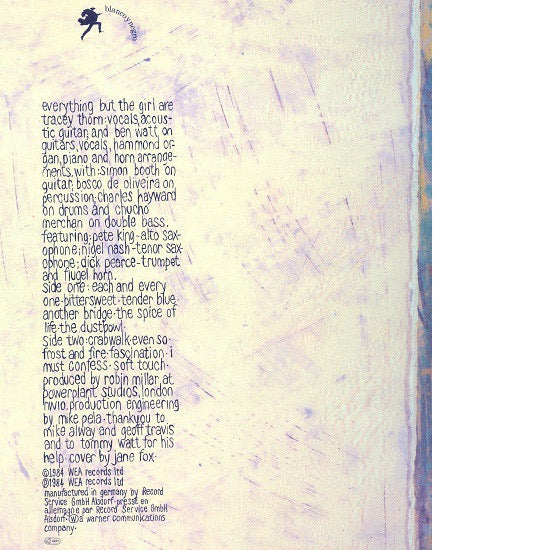 blancoynegro
everything but the girl are
tracey thorn:vocals,acous-
tic guitar; and ben watt on
guitars, vocals, hammond or-
gan, piano and horn arrange-
ments. with: simon booth on
guitar; bosco de oliveira on
percussion; charles hayward
on drums and chucho
merchan on double bass.
featuring: pete king-alto sax-
ophone; nigel nash-tenor sax-
ophone; dick pearce-trumpet
and flugel horn.
side one: each and every
one·bittersweet·tender blue·
another bridge·the spice of
life·the dustbowl·
side two·crabwalk·even so·
frost and fire·fascination·i
must confess·soft touch·
produced by robin millar at
powerplant studios, london
nw10. production engineering
by mike pela·thankyou to
mike alway and geoff travis
and to tommy watt for his
help·cover by jane fox·
©1984 WEA records ltd
℗1984 WEA records ltd
manufactured in germany by Record
Service GmbH Alsdorf·pressé en
allemagne par Record Service GmbH
Alsdorf·Ⓦa warner communications
company·